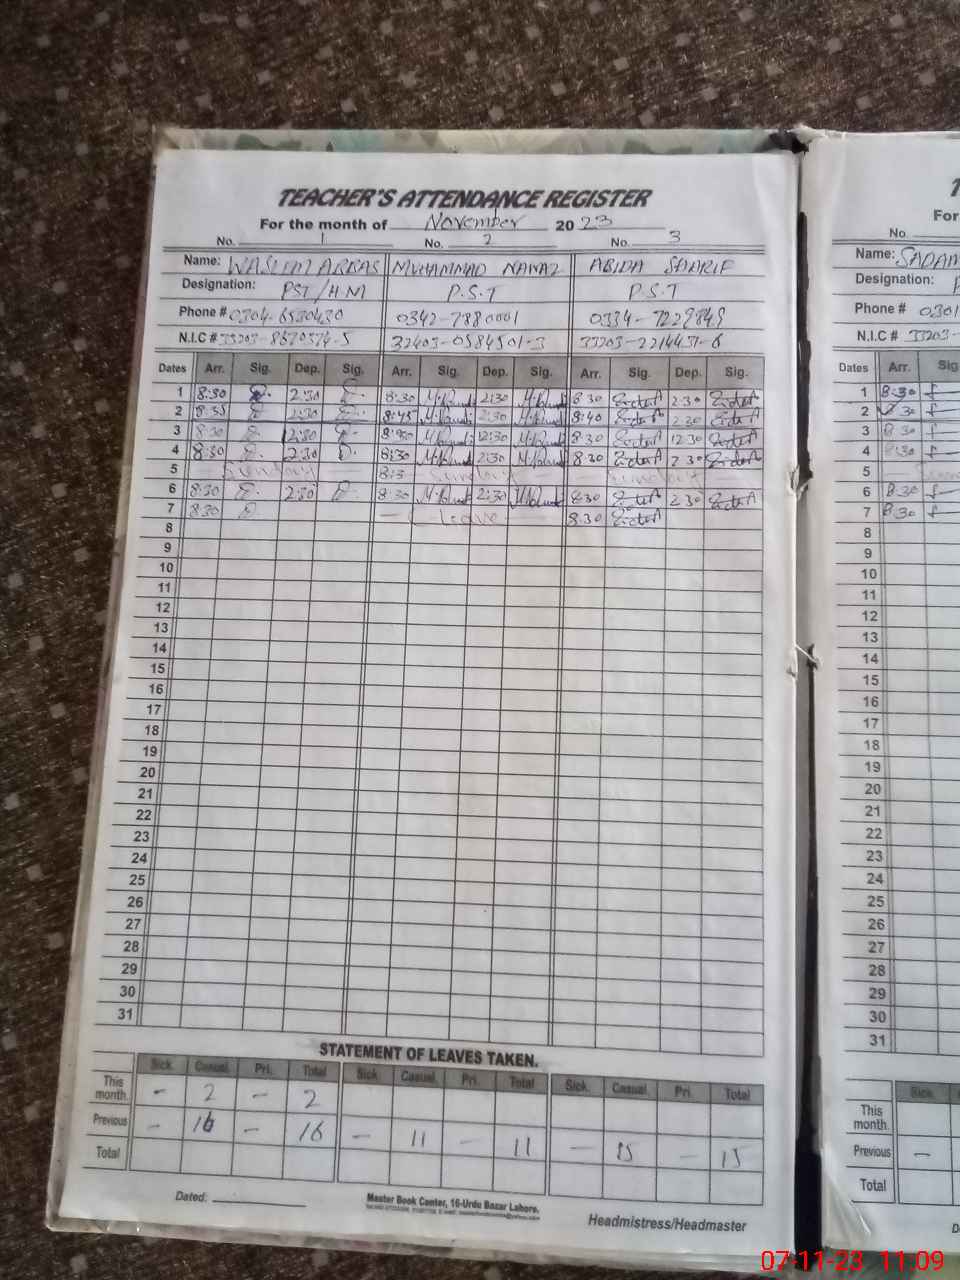 TEACHER'S ATTENDANCE REGISTER
For the month of November 2023
No. 1 No. 2 No. 3
Name: WASEEM ABBAS MUHAMMAD NAWAZ ABIDA SHARIF
Designation: PST/HM P.S.T P.S.T
Phone # 0304-6530430 0342-7880001 0334-7229849
N.I.C # 33203-8670374-5 32403-0584501-3 33203-2214431-6
Dates Arr. Sig. Dep. Sig. Arr. Sig. Dep. Sig. Arr. Sig. Dep. Sig.
1 8:30 2:30 8:30 2:30 8:30 2:30
2 8:35 2:30 8:45 2:30 8:40 2:30
3 8:30 12:30 8:30 12:30 8:30 12:30
4 8:30 2:30 8:30 2:30 8:30 2:30
5 Sunday 8:3 Sunday Sunday
6 8:30 2:30 8:30 2:30 8:30 2:30
7 8:30 C-leave 8:30
8
9
10
11
12
13
14
15
16
17
18
19
20
21
22
23
24
25
26
27
28
29
30
31
STATEMENT OF LEAVES TAKEN.
Sick. Casual. Pri. Total Sick. Casual. Pri. Total Sick. Casual. Pri. Total
This month. - 2 - 2
Previous - 16 - 16 - 11 - 11 - 15 - 15
Total
Dated:
Master Book Center, 16-Urdu Bazar Lahore.
Headmistress/Headmaster
T
For
No.
Name: SADAM
Designation: P
Phone # 0301
N.I.C # 33203-
Dates Arr. Sig
1 8:30
2 8:30
3 8:30
4 8:30
5
6 8:30
7 8:30
8
9
10
11
12
13
14
15
16
17
18
19
20
21
22
23
24
25
26
27
28
29
30
31
Sick.
This month.
Previous -
Total
D
07-11-23 11:09